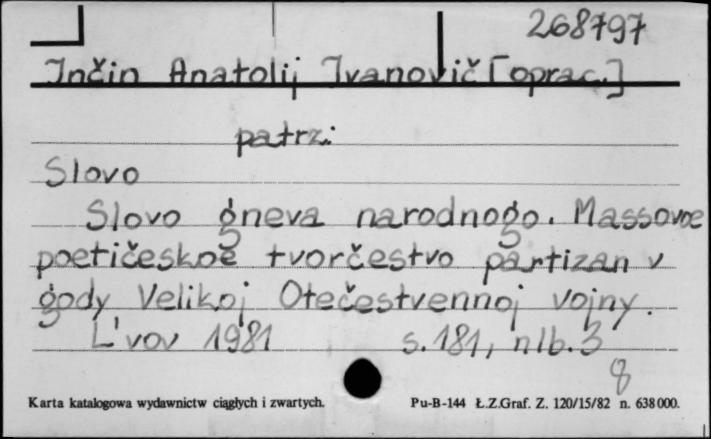 268797
Inčin Anatolij Ivanovič [oprac.]
patrz:
Slovo
Slovo gneva narodnogo. Massovoe
poetičeskoe tvorčestvo partizan v
gody Velikoj Otečestvennoj vojny.
L'vov 1981 s. 181, nlb. 3
8
Karta katalogowa wydawnictw ciągłych i zwartych. Pu-B-144 Ł.Z.Graf. Z. 120/15/82 n. 638000.